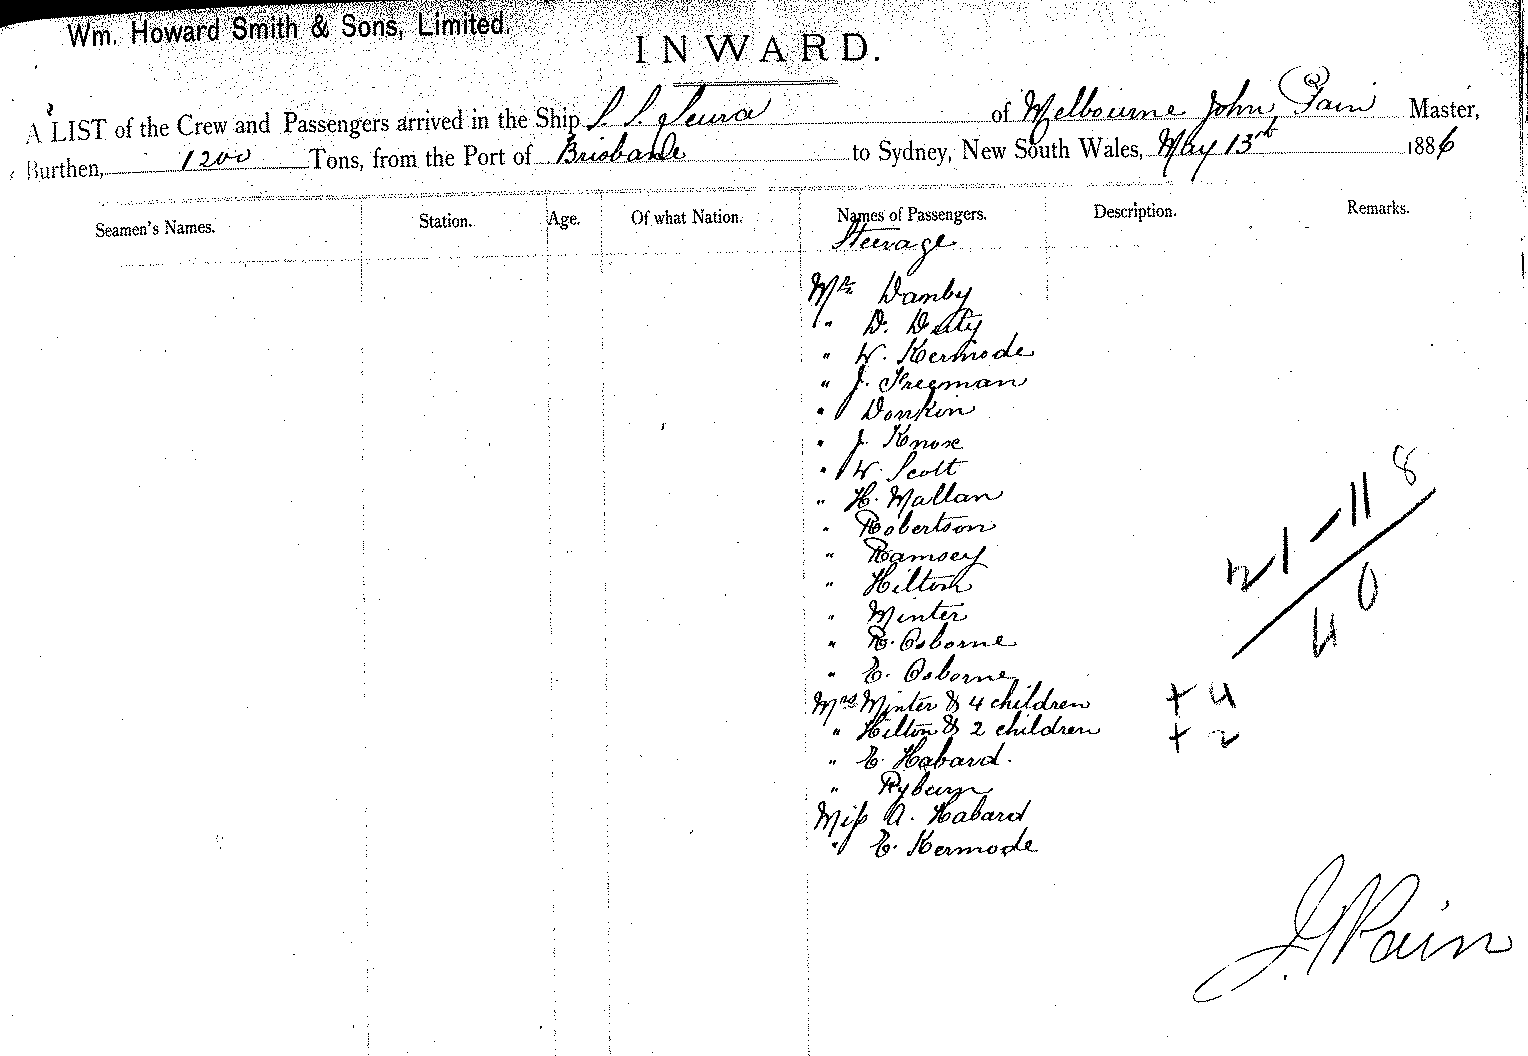 Wm. Howard Smith & Sons, Limited.
INWARD.
A LIST of the Crew and Passengers arrived in the Ship S. S. Leura of Melbourne John Pain Master,
Burthen, 1200 Tons, from the Port of Brisbane to Sydney, New South Wales, May 13th 1886
Seamen's Names. Station. Age. Of what Nation. Names of Passengers. Description. Remarks.
Steerage
Mr Danby
" D. Duty
" W. Kermode
" J. Freeman
" Donkin
" J. Knox
" W. Scott
" H. Mallan
" Robertson
" Ramsey
" Hilton
" Minter
" R. Osborne
" E. Osborne
Mrs Minter & 4 children + 4
" Hilton & 2 children + 2
" E. Habard.
" Ryburn
Miss A. Habard
" E. Kermode
21 - 11 8
4 0
J. Pain